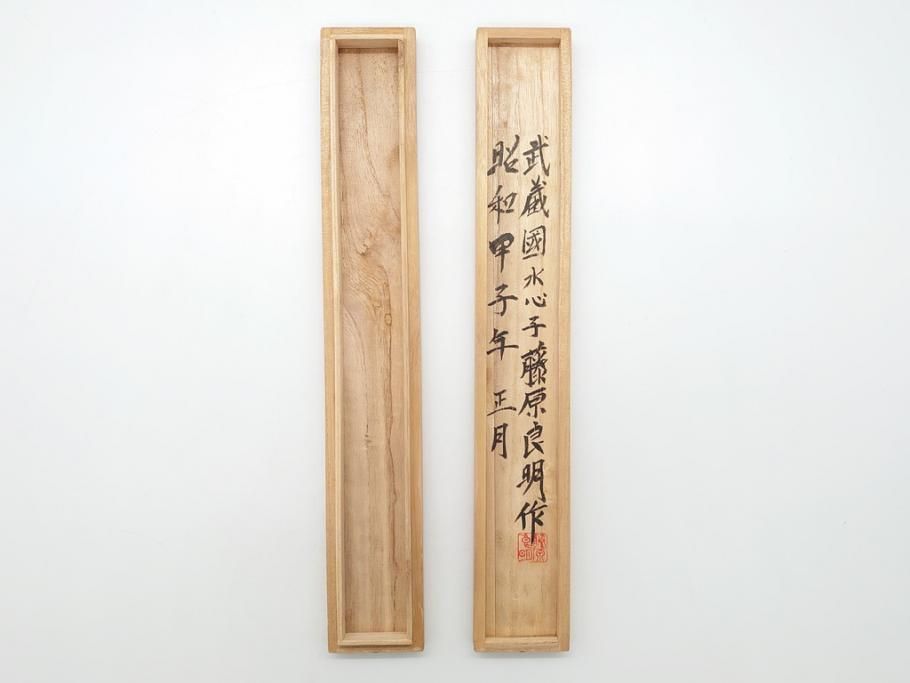 武蔵國水心子藤原良明作
昭和甲子年 正月